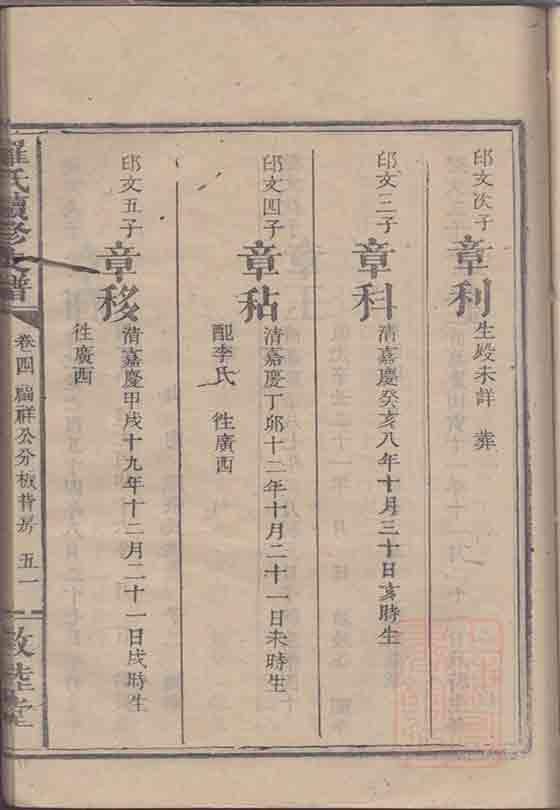 邱文次子
章利
生歿未詳 葬
邱文三子
章科
清嘉慶癸亥八年十月三十日亥時生
邱文四子
章秥
清嘉慶丁卯十二年十月二十一日未時生
配李氏 徃廣西
邱文五子
章移
清嘉慶甲戌十九年十二月二十一日戌時生
徃廣西
羅氏續修支譜
卷四 福祥公分板背房 五一
敦陸堂